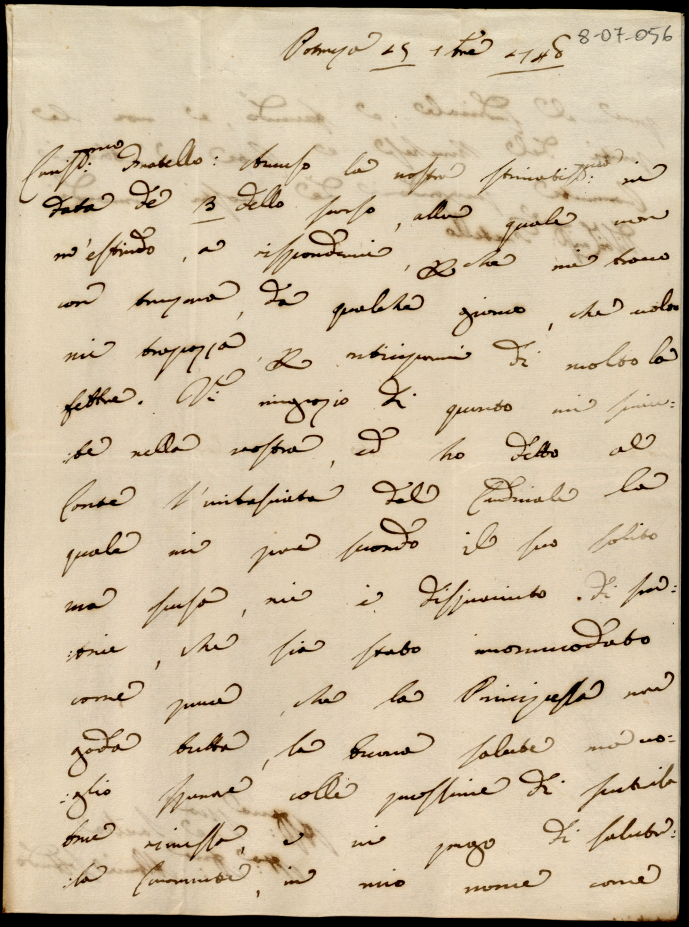 8-07-056
15 7bre 1748
Cariss:mo Fratello: la vostra stimatiss:ma in
data de 13 dello scorso, alla quale non
m'estendo, a rispondervi, che mi trovo
con da qualche giorno, che
mi di molto la
febbre. Vi ringrazio di quanto mi scrive:
:te nella vostra, ed ho detto al
Conte l'imbasciata del Cardinale la
quale mi pare secondo il suo solito
ma mi è dispiaciuto di sen:
:tire, che sia stato incomodato
come pure che la Principessa non
goda tutta, la buona salute ma vo:
:glio sperare colle prossime di sentirla
tutta rimessa, e vi prego di salutar:
:la in mio nome come